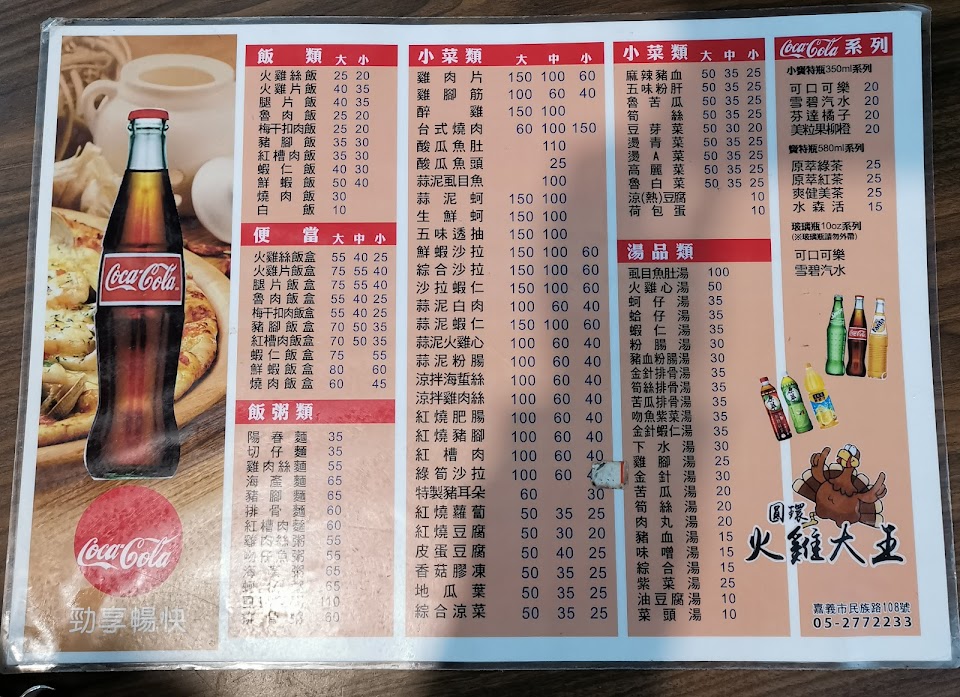 Coca-Cola
Coca-Cola
勁享暢快
飯類 大 小
火雞絲飯 25 20
火雞片飯 40 35
腿片飯 40 35
魯肉飯 25 20
梅干扣肉飯 25 20
豬腳飯 35 30
紅槽肉飯 35 30
蝦仁飯 40 30
鮮蝦飯 50 40
燒肉飯 30
白飯 10
便當 大 中 小
火雞絲飯盒 55 40 25
火雞片飯盒 75 55 40
腿片飯盒 75 55 40
魯肉飯盒 55 40 25
梅干扣肉飯盒 55 40 25
豬腳飯盒 70 50 35
紅槽肉飯盒 70 50 35
蝦仁飯盒 75 55
鮮蝦飯盒 80 60
燒肉飯盒 60 45
飯粥類
陽春麵 35
切仔麵 35
雞肉絲麵 55
海產麵 65
豬腳麵 65
排骨麵 60
紅槽肉麵 60
雞肉絲粥 55
65
65
65
110
60
小菜類 大 中 小
雞肉片 150 100 60
雞腳筋 100 60 40
醉雞 150 100
台式燒肉 60 100 150
酸瓜魚肚 110
酸瓜魚頭 25
蒜泥虱目魚 100
蒜泥蚵 150 100
生鮮蚵 150 100
五味透抽 150 100
鮮蝦沙拉 150 100 60
綜合沙拉 150 100 60
沙拉蝦仁 150 100 60
蒜泥白肉 100 60 40
蒜泥蝦仁 150 100 60
蒜泥火雞心 100 60 40
蒜泥粉腸 100 60 40
涼拌海蜇絲 100 60 40
涼拌雞肉絲 100 60 40
紅燒肥腸 100 60 40
紅燒豬腳 100 60 40
紅槽肉 100 60 40
綠筍沙拉 100 60
特製豬耳朵 60 30
紅燒蘿蔔 50 35 25
紅燒豆腐 50 30 25
皮蛋豆腐 50 40 25
香菇膠凍 50 35 25
地瓜葉 50 35 25
綜合涼菜 50 35 25
小菜類 大 中 小
麻辣豬血 50 35 25
五味粉肝 50 35 25
魯苦瓜 50 35 25
筍絲 50 35 25
豆芽菜 50 30 20
燙青菜 50 35 25
燙A菜 50 35 25
高麗菜 50 35 25
魯白菜 50 35 25
涼(熱)豆腐 10
荷包蛋 10
湯品類
虱目魚肚湯 100
火雞心湯 50
蚵仔湯 35
蛤仔湯 35
蝦仁湯 35
粉腸湯 30
豬血粉腸湯 30
金針排骨湯 35
筍絲排骨湯 35
苦瓜排骨湯 35
吻魚紫菜湯 35
金針蝦仁湯 35
下水湯 30
雞腳湯 25
金針湯 30
苦瓜湯 20
筍絲湯 20
肉丸湯 20
豬血湯 15
味噌湯 15
綜合湯 15
紫菜湯 25
油豆腐湯 10
菜頭湯 10
Coca-Cola 系列
小寶特瓶350ml系列
可口可樂 20
雪碧汽水 20
芬達橘子 20
美粒果柳橙 20
寶特瓶580ml系列
原萃綠茶 25
原萃紅茶 25
爽健美茶 25
水森活 15
玻璃瓶10oz系列
(※玻璃瓶請勿外帶)
可口可樂
雪碧汽水
圓環
火雞大王
嘉義市民族路108號
05-2772233